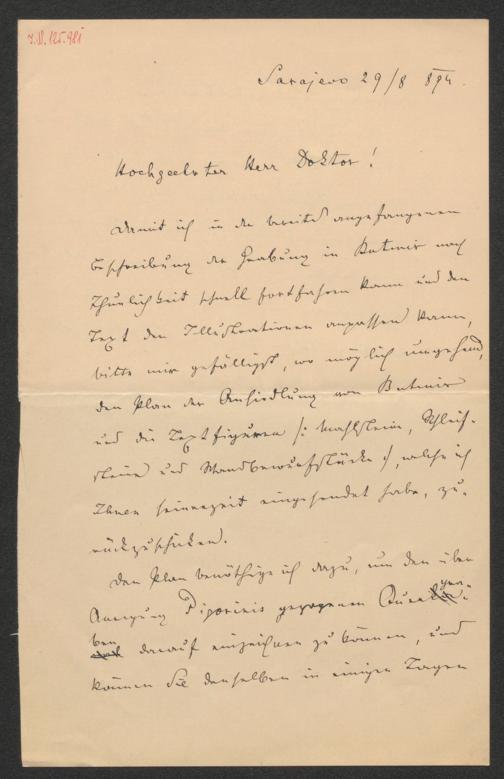 Sarajevo 29/8 894.
Hochgeehrter Herr Doktor!
Damit ich in der bereits angefangenen
Beschreibung der Grabung in Butmir nach
Thunlichkeit schnell fortfahren kann und den
Text den Illustrationen anpassen kann,
bitte mir gefälligst, wo möglich umgehend,
den Plan der Ansiedlung von Butmir
und die Textfiguren /: Mahlsteine, Schleif-
steine und Wandbewurfstücke :/, welche ich
Ihnen seinerzeit eingesendet habe, zu-
rückzuschicken.
Den Plan benöthige ich dazu, um den über
Anregung Pigorinis gezogenen
ben darauf einzeichnen zu können, und
können Sie denselben in einigen Tagen